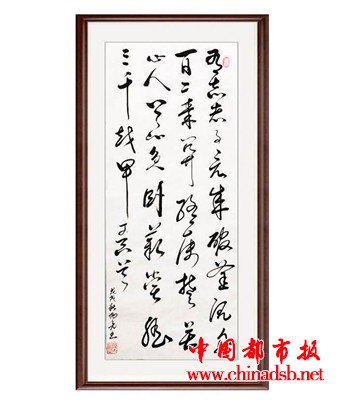 有志者事竟成破釜沉舟
百二秦關終屬楚苦
心人天不負臥薪嘗膽
三千越甲可吞吳
戊戌秋
中国都市报
www.chinadsb.net